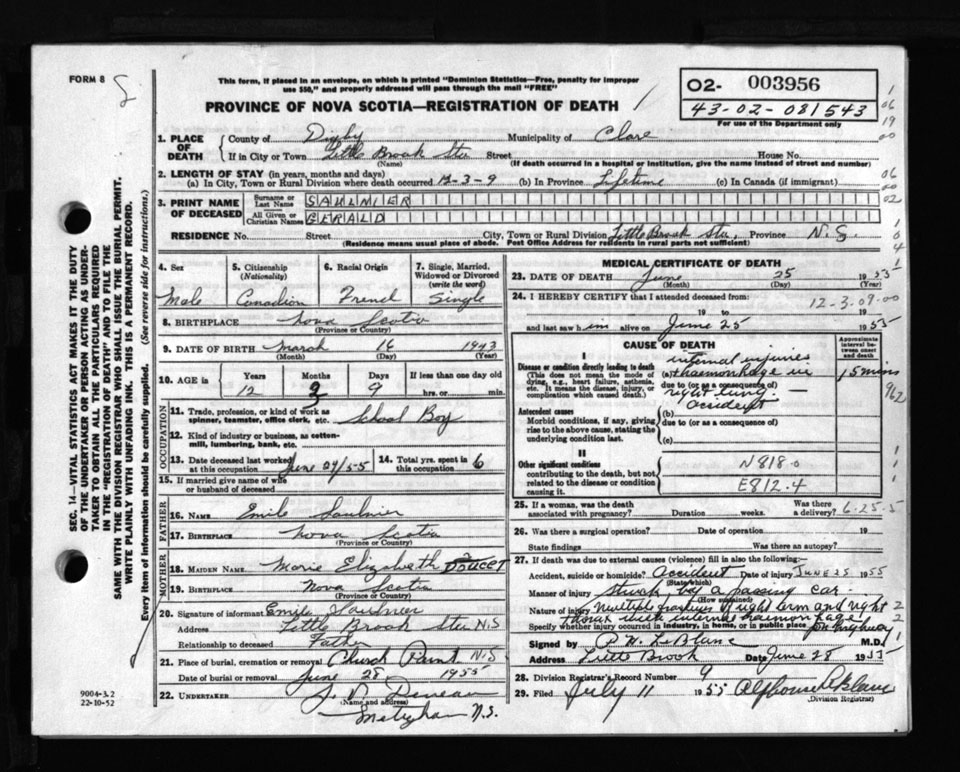 FORM 8
This form, if placed in an envelope, on which is printed "Dominion Statistics—Free, penalty for improper
use $50," and properly addressed will pass through the mail "FREE"
PROVINCE OF NOVA SCOTIA—REGISTRATION OF DEATH
02- 003956
43-02-081543
For use of the Department only
SEC. 14—VITAL STATISTICS ACT MAKES IT THE DUTY
OF THE UNDERTAKER OR PERSON ACTING AS UNDER-
TAKER TO OBTAIN ALL THE PARTICULARS REQUIRED
IN THE "REGISTRATION OF DEATH" AND TO FILE THE
SAME WITH THE DIVISION REGISTRAR WHO SHALL ISSUE THE BURIAL PERMIT.
WRITE PLAINLY WITH UNFADING INK. THIS IS A PERMANENT RECORD.
Every item of information should be carefully supplied. (See reverse side for instructions.)
1. PLACE OF DEATH
County of Digby Municipality of Clare
If in City or Town Little Brook Stn Street House No.
(Name) (If death occurred in a hospital or institution, give the name instead of street and number)
2. LENGTH OF STAY (in years, months and days)
(a) In City, Town or Rural Division where death occurred 12-3-9 (b) In Province Lifetime (c) In Canada (if immigrant)
3. PRINT NAME OF DECEASED
Surname or Last Name SAULNIER
All Given or Christian Names GERALD
RESIDENCE No. Street City, Town or Rural Division Little Brook Stn, Province N.S.
(Residence means usual place of abode. Post Office Address for residents in rural parts not sufficient)
4. Sex Male
5. Citizenship (Nationality) Canadian
6. Racial Origin French
7. Single, Married, Widowed or Divorced (write the word) Single
8. BIRTHPLACE Nova Scotia
(Province or Country)
9. DATE OF BIRTH March 16 1943
(Month) (Day) (Year)
10. AGE in Years Months Days If less than one day old
12 3 9 hrs. or min.
OCCUPATION
11. Trade, profession, or kind of work as
spinner, teamster, office clerk, etc. School Boy
12. Kind of industry or business, as cotton-
mill, lumbering, bank, etc.
13. Date deceased last worked at this occupation June 24/55
14. Total yrs. spent in this occupation 6
15. If married give name of wife
or husband of deceased
FATHER
16. NAME Emile Saulnier
17. BIRTHPLACE Nova Scotia
(Province or Country)
MOTHER
18. MAIDEN NAME Marie Elizabeth Doucet
19. BIRTHPLACE Nova Scotia
(Province or Country)
20. Signature of informant Emile Saulnier
Address Little Brook Stn N.S
Relationship to deceased Father
21. Place of burial, cremation or removal Church Point N.S
Date of burial or removal June 28 1955
22. UNDERTAKER
(Name and address)
Meteghan N.S.
9004-3.2
22-10-52
MEDICAL CERTIFICATE OF DEATH
23. DATE OF DEATH June 25 1955
(Month) (Day)
24. I HEREBY CERTIFY that I attended deceased from:
12-3-09-00
19 to 19
and last saw him alive on June 25 1955
CAUSE OF DEATH
Approximate interval between onset and death
I
Disease or condition directly leading to death
(This does not mean the mode of
dying, e.g., heart failure, asthenia,
etc. It means the disease, injury, or
complication which caused death.)
internal injuries
(a) haemorrhage in 15 mins
due to (or as a consequence of)
right lung.
accident
962
Antecedent causes
Morbid conditions, if any, giving
rise to the above cause, stating the
underlying condition last.
(b)
due to (or as a consequence of)
(c)
II
Other significant conditions
contributing to the death, but not
related to the disease or condition
causing it.
N818.0
E812.4
25. If a woman, was the death
associated with pregnancy? Duration weeks. Was there a delivery? 6-25-5
26. Was there a surgical operation? Date of operation 19
State findings Was there an autopsy?
27. If death was due to external causes (violence) fill in also the following:—
Accident, suicide or homicide? Accident Date of injury JUNE 25 1955
(State which)
Manner of injury Struck by a passing car.
(How sustained)
Nature of injury Multiple fractures of right arm and right
thorax with internal haemorrhage
Specify whether injury occurred in industry, in home, or in public place on highway
Signed by P. W. LeBlanc M.D.
Address Little Brook Date June 28 1955
28. Division Registrar's Record Number 9
29. Filed July 11 1955
(Division Registrar)